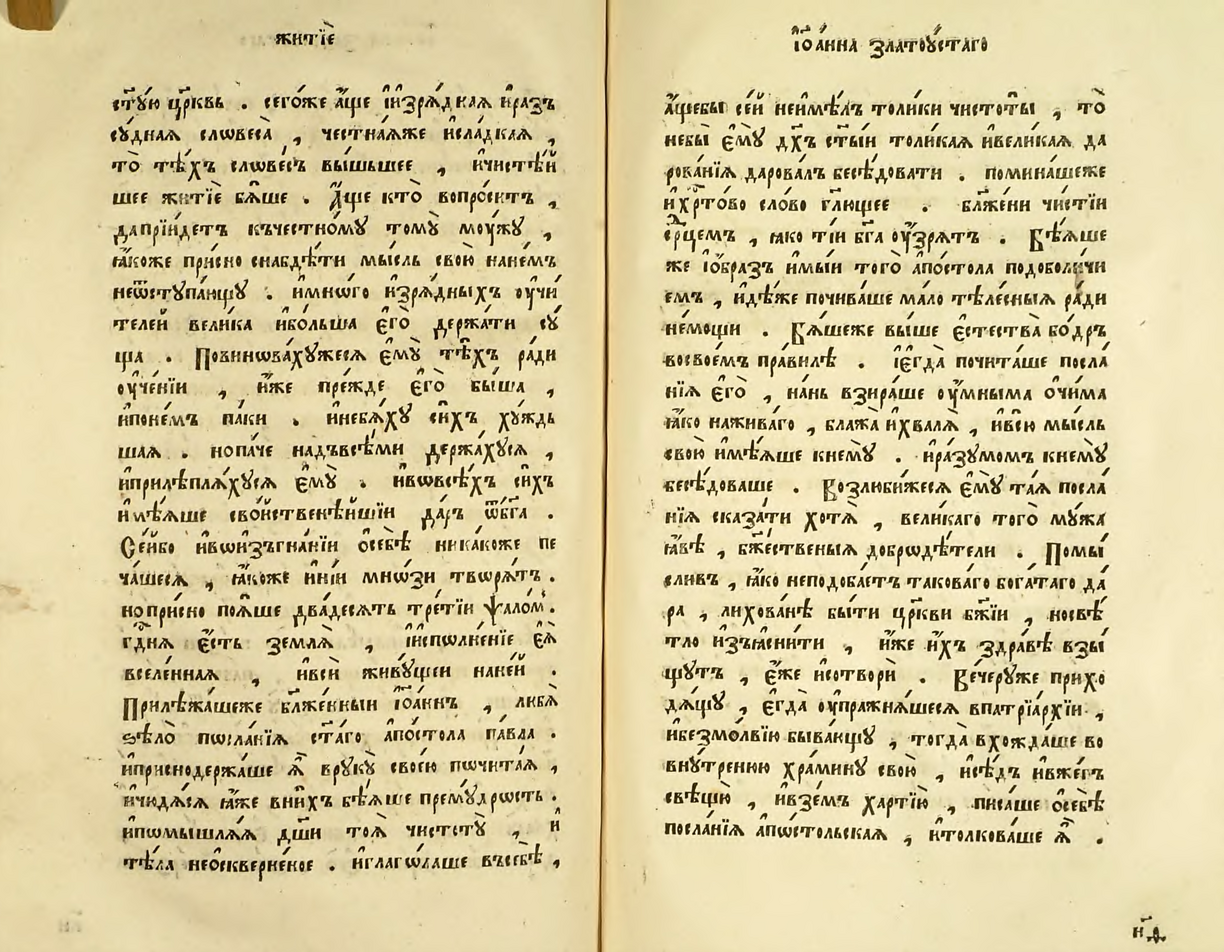 житїѐ
ст҃ꙋ́ю цр҃квь . сего́же а҆́ще і҆и҆зрѧ́днаѧ и҆ра́зъ
сꙋ́днаѧ словеса̀ , че́стнаѧже и҆сла́дкаѧ ,
то̀ тѣ́хъ слѡве́съ вы́шьшее , и҆чистѣ́й
шее житїѐ бѧ́ше . А҆́ще кто̀ вопро́ситъ ,
дапрїи́детъ къче́стномꙋ томꙋ̀ мꙋ́жꙋ ,
ꙗ҆́коже при́сно снабдѣ́ти мы́сль свою̀ нане́мъ
неѿстꙋпа́ющꙋ . и҆мно́гѡ и҆зрѧ́дныхъ ᲂу҆чи́
телей вели́ка и҆бо́льша є҆го̀ держа́ти сꙋ́
ща . Повинѡва́хꙋжесѧ є҆мꙋ̀ тѣ́хъ ра́ди
ᲂу҆че́нїи , и҆́же пре́жде є҆го̀ бы́ша ,
и҆поне́мъ па́ки . и҆небѧ́хꙋ си́хъ хꙋ́ждь
шаѧ . нопа́че надъвсѣ́ми держа́хꙋсѧ ,
и҆прилѣплѧ́хꙋсѧ є҆мꙋ̀ . и҆вовсѣ́хъ си́хъ
и҆мѣ́ѧше сво́йственѣйшїи да́ръ ѿбг҃а .
Се́йбо и҆вѡи҆згна́нїи ѡ҆себѣ̀ ника́коже пе
ча́шесѧ , ꙗ҆́коже и҆ні́и мнѡ́зи твѡрѧ́тъ .
нопри́сно поѧ́ше два́десѧть тре́тїи ѱало́м .
гдⷭ҇нѧ є҆́сть землѧ̀ , і҆и҆спѡлне́нїе є҆ѧ̀
вселе́ннаѧ , и҆всѝ живꙋ́щеи нане́й .
Прилѣжа́шеже бл҃же́нныи і҆ѡа́ннъ , любѧ̀
ѕѣ́ло пѡсла́нїѧ ст҃а́го а҆по́стола па́вла .
и҆при́снодержа́ше ѧ҆̀ врꙋкꙋ̀ свое́ю пѡчита́ѧ ,
и҆чюдѧ́сѧ ꙗ҆́же вни́хъ бѣ́ѧше премꙋ́дрѡсть .
и҆пѡмышлѧ́ѧ дш҃и тоѧ̀ чистотꙋ̀ , и҆
тѣ́ла неѡскверне́ное . и҆глаго́лаше въсебѣ̀ ,
і҆ѡа́нна златоꙋ́стаго
а҆́щебы се́й неи҆мѣ́лъ толи́ки чистоты̀ , то̀
небы̀ є҆мꙋ̀ дх҃ъ ст҃ы́и толи́каѧ и҆вели́каѧ да
рова́нїѧ дарова́лъ бесѣ́довати . помина́шеже
и҆хрⷭ҇то́во сло́во гл҃ющее . бл҃же́ни чи́стїи
срⷣцемъ , ꙗ҆́ко ті́и бг҃а ᲂу҆́зрѧтъ . Бѣ́ѧше
же і҆ѻ҆́бразъ и҆мы́и того̀ а҆по́стола подоболи́чи
емъ , и҆дѣ́же почива́ше ма́ло тѣле́сныѧ ра́ди
не́мощи . Бѧ́шеже вы́ше є҆стества̀ бо́дръ
восвое́мъ пра́вилѣ . і҆є҆гда̀ почита́ше посла́
нїѧ є҆го̀ , на́нь взира́ше ᲂу҆́мныма ѻ҆чи́ма
ꙗ҆́ко нажива́го , блажа̀ и҆хвалѧ̀ , и҆всю̀ мы́сль
свою̀ и҆мѣ́ѧше кнемꙋ̀ . и҆ра́зꙋмомъ кнемꙋ̀
бесѣ́доваше . Возлюби́жесѧ є҆мꙋ̀ таѧ̀ посла́
нїѧ сказа́ти хотѧ̀ , вели́каго того̀ мꙋ́жа
ꙗ҆́вѣ , бжⷭ҇е́ственыѧ добродѣ́тели . Помы́
сливъ , ꙗ҆́ко неподоба́етъ такова́го бога́таго да́
ра , лихова́нѣ бы́ти цр҃кви бж҃їи , носвѣ́
тло и҆зъѧсни́ти , и҆́же и҆́хъ здра́вѣ взы́
щꙋтъ , є҆́же и҆сотворѝ . Ве́черꙋже прихо
дѧ́щꙋ , є҆гда̀ ᲂу҆пражнѧ́шесѧ впатрїа́рхїи ,
и҆безмо́лвїю быва́ющꙋ , тогда̀ вхожда́ше во
внꙋ́треннюю хра́минꙋ свою̀ , и҆сѣ́дъ и҆вже́гъ
свѣщꙋ̀ , и҆взе́мъ ха́ртїю , писа́ше ѡ҆себѣ̀
посла́нїѧ а҆пѡ́стольскаѧ , и҆толкова́ше ѧ҆̀ .